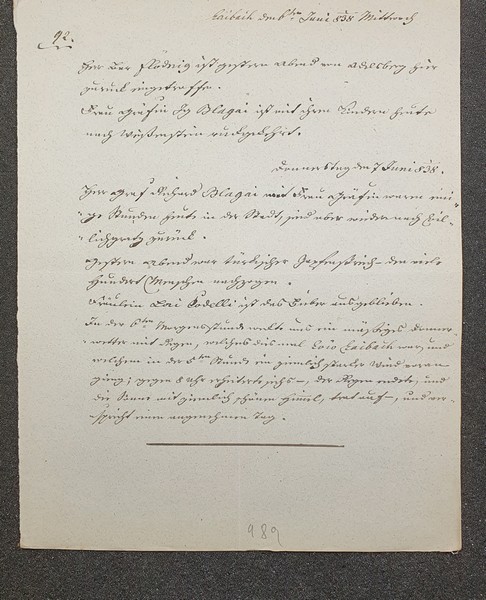 Laibach den 6ten Juni 838 Mittwoch
92.
Herr Bar Flödnig ist gestern Abend von Adelsberg hier
zurück eingetroffen.
Frau Gräfin Blagai ist mit ihren Kindern heute
nach Weißenstein rückgekehrt.
Donnerstag den 7 Juni 838.
Herr Graf Richard Blagai mit Frau Gräfin waren eini-
ge Stunden heute in der Stadt, sind aber wieder nach Bil-
lichgratz zurück.
Gestern Abend war türkischer Zapfenstreich – dem viele
Hundert Menschen nachzogen.
Fräulein Codelli ist das Fieber ausgeblieben.
In der 6ten Morgenstunde weckte uns ein mäßiges Donner-
wetter mit Regen, welches dies mal Laibach war, und
welchem in der 5ten Stunde ein ziemlich starker Wind voran
ging; gegen 8 Uhr erheiterte sichs –, der Regen endete, und
die Sonne mit ziemlich schönem Himmel, trat auf –, und ver-
spricht einen angenehmen Tag.
989